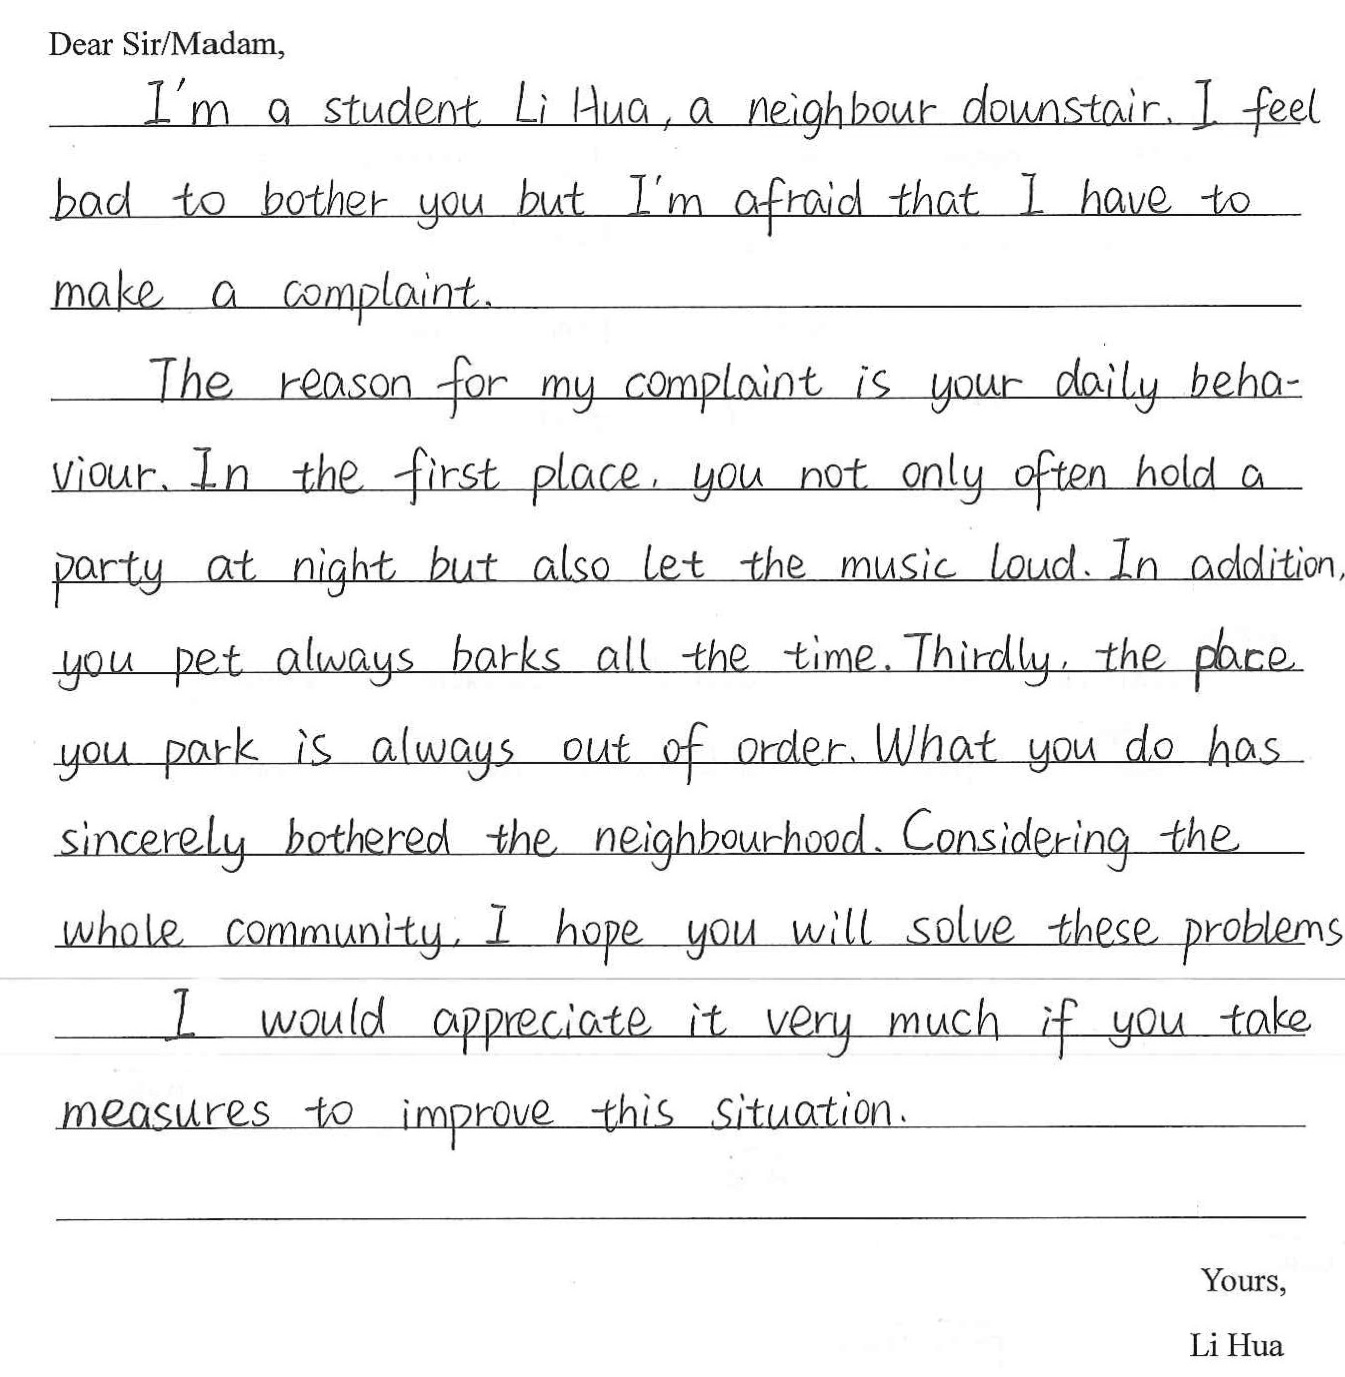 Dear Sir/Madam,
I'm a student Li Hua, a neighbour dounstair. I feel
bad to bother you but I'm afraid that I have to
make a complaint.
The reason for my complaint is your daily beha-
viour. In the first place, you not only often hold a
party at night but also let the music loud. In addition,
you pet always barks all the time. Thirdly, the place
you park is always out of order. What you do has
sincerely bothered the neighbourhood. Considering the
whole community, I hope you will solve these problems
I would appreciate it very much if you take
measures to improve this situation.
Yours,
Li Hua